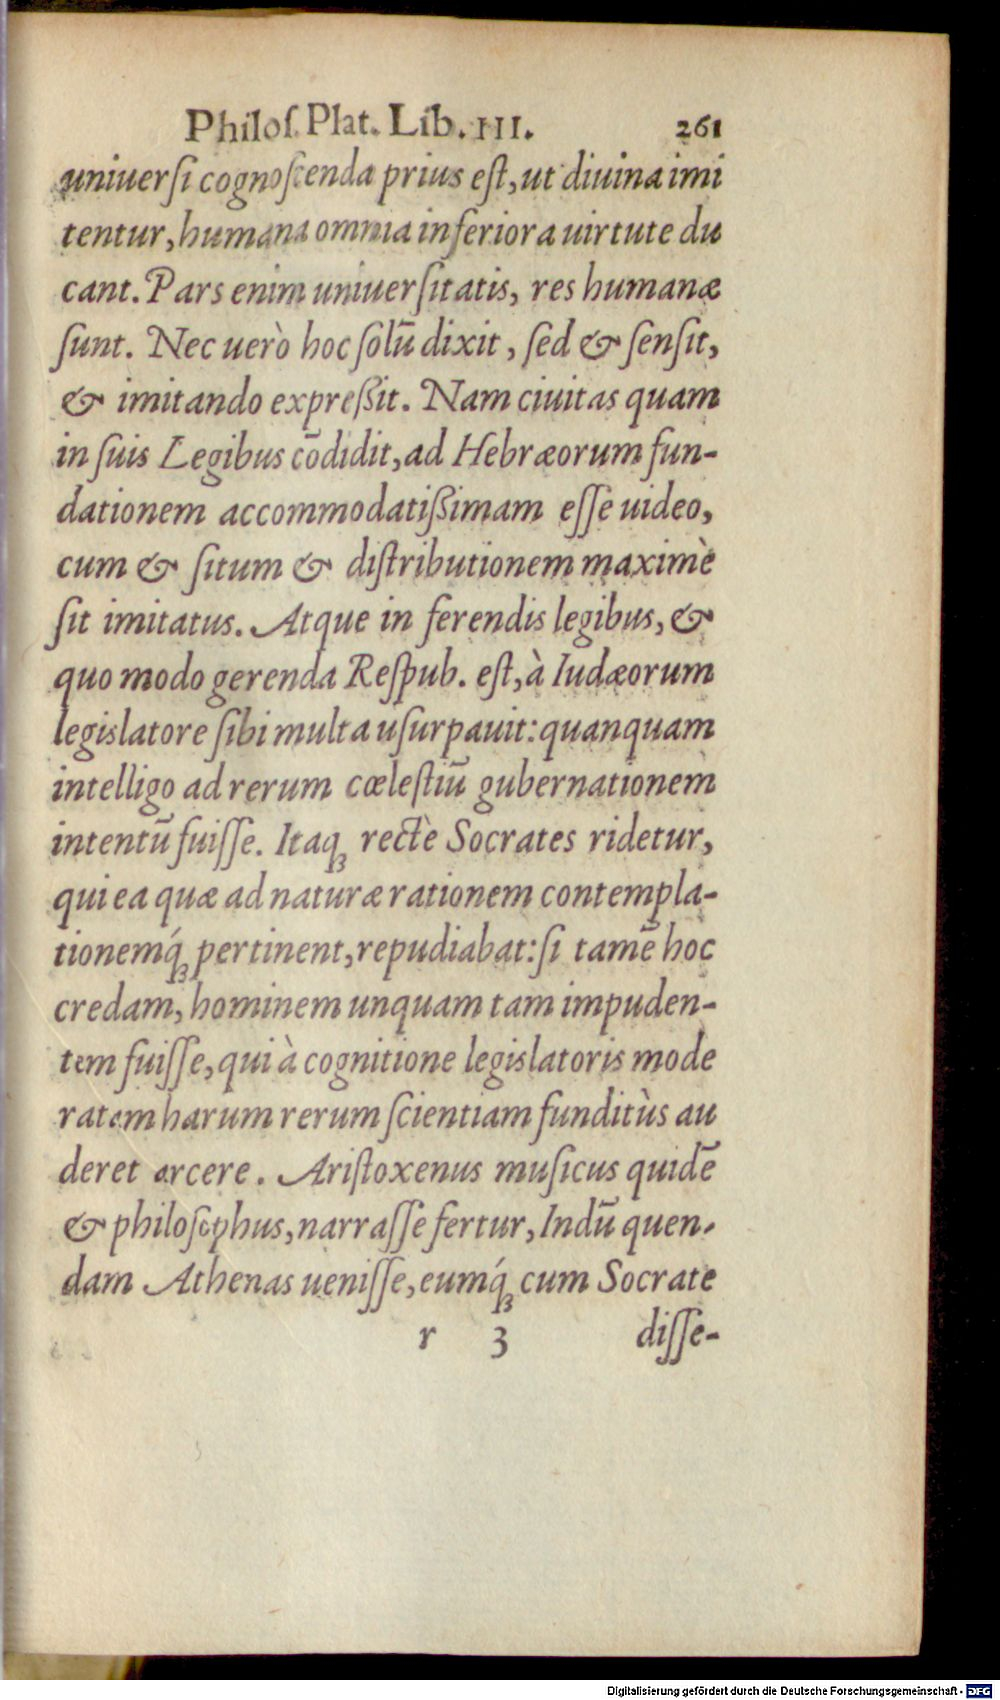 Philoſ. Plat. Lib. III. 261
uniuerſi cognoſcenda prius eſt, ut diuina imi
tentur, humana omnia inferiora uirtute du
cant. Pars enim uniuerſitatis, res humanæ
ſunt. Nec uerò hoc ſolū dixit, ſed & ſenſit,
& imitando expreßit. Nam ciuitas quam
in ſuis Legibus cōdidit, ad Hebræorum fun-
dationem accommodatißimam eſſe uideo,
cum & ſitum & diſtributionem maximè
ſit imitatus. Atque in ferendis legibus, &
quo modo gerenda Reſpub. eſt, à Iudæorum
legislatore ſibi multa uſurpauit: quanquam
intelligo ad rerum cœleſtiū gubernationem
intentū fuiſſe. Itaqꝫ rectè Socrates ridetur,
qui ea quæ ad naturæ rationem contempla-
tionemq́ꝫ pertinent, repudiabat: ſi tamē hoc
credam, hominem unquam tam impuden-
tem fuiſſe, qui à cognitione legislatoris mode
ratem harum rerum ſcientiam funditùs au
deret arcere. Ariſtoxenus muſicus quidē
& philoſophus, narraſſe fertur, Indū quen-
dam Athenas ueniſſe, eumq́ꝫ cum Socrate
r 3 diſſe-
Digitalisierung gefördert durch die Deutsche Forschungsgemeinschaft - DFG